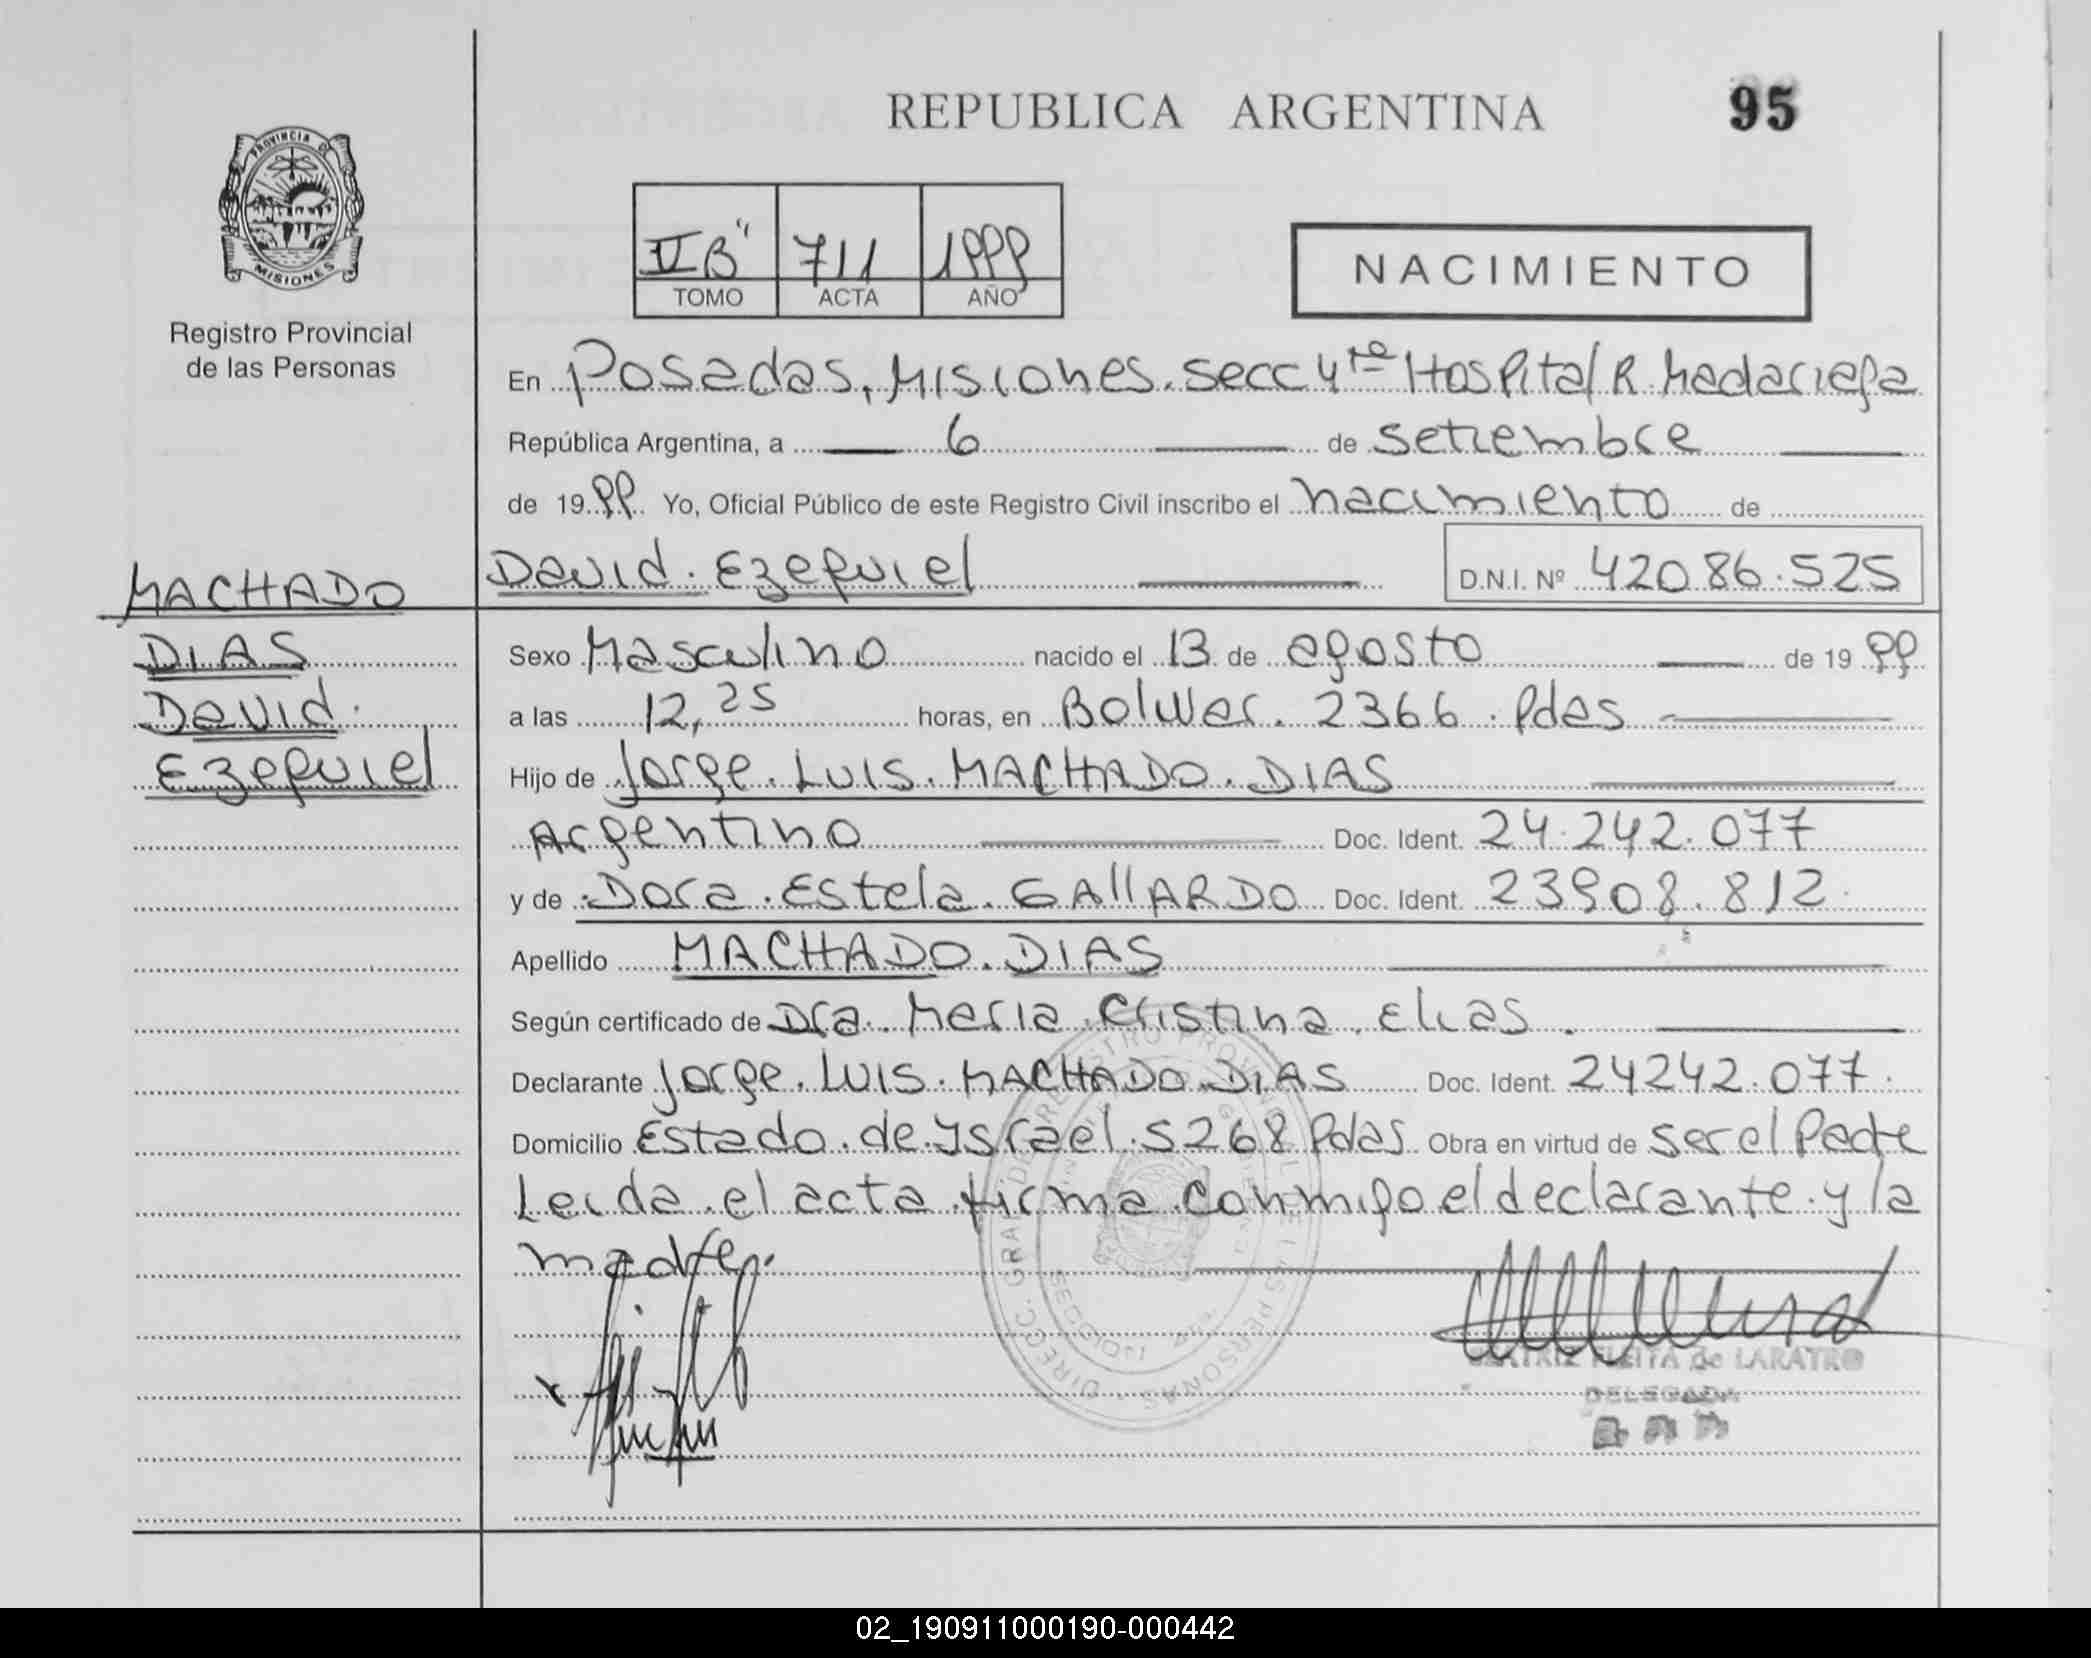 REPUBLICA ARGENTINA
95
PROVINCIA DE
MISIONES
Registro Provincial
de las Personas
II B" 711 1999
TOMO ACTA AÑO
NACIMIENTO
En Posadas, Misiones. secc 4ta Hospital R. Madariaga
República Argentina, a 6 de setiembre
de 1999 Yo, Oficial Público de este Registro Civil inscribo el nacimiento de
David. Ezequiel D.N.I. Nº 42086.525
MACHADO
DIAS
David.
Ezequiel
Sexo Masculino nacido el 13 de agosto de 1999
a las 12,25 horas, en Bolivar. 2366. Pdas
Hijo de Jorge. Luis. MACHADO. DIAS
Argentino Doc. Ident. 24.242.077
y de Dora. Estela. GAllARDO Doc. Ident. 23908.812.
Apellido MACHADO. DIAS
Según certificado de Dra. Maria Cristina. Elias.
Declarante Jorge. Luis. MACHADO. DIAS Doc. Ident. 24242.077.
Domicilio Estado. de. Israel. 5268 Pdas. Obra en virtud de ser el Padre
Leida. el acta. firma. conmigo el declarante. y la
madre.
DELEGADA
02_190911000190-000442